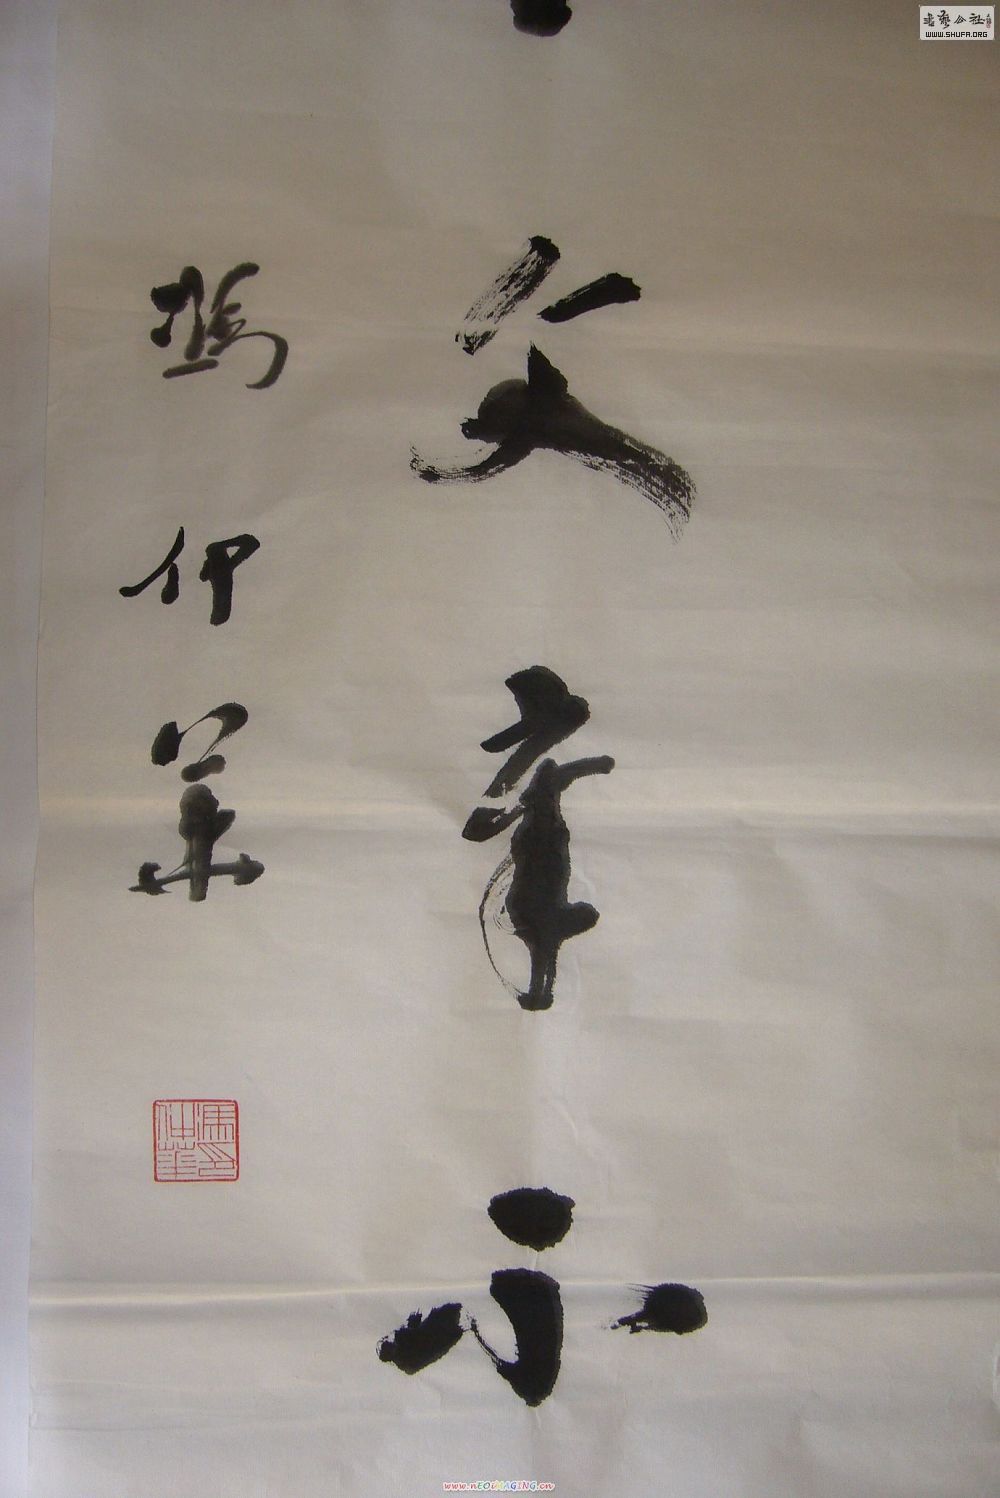 書藝公社
WWW.SHUFA.ORG
文章
馮仲華
馮印仲華
www.nEOiMAGiNG.cn